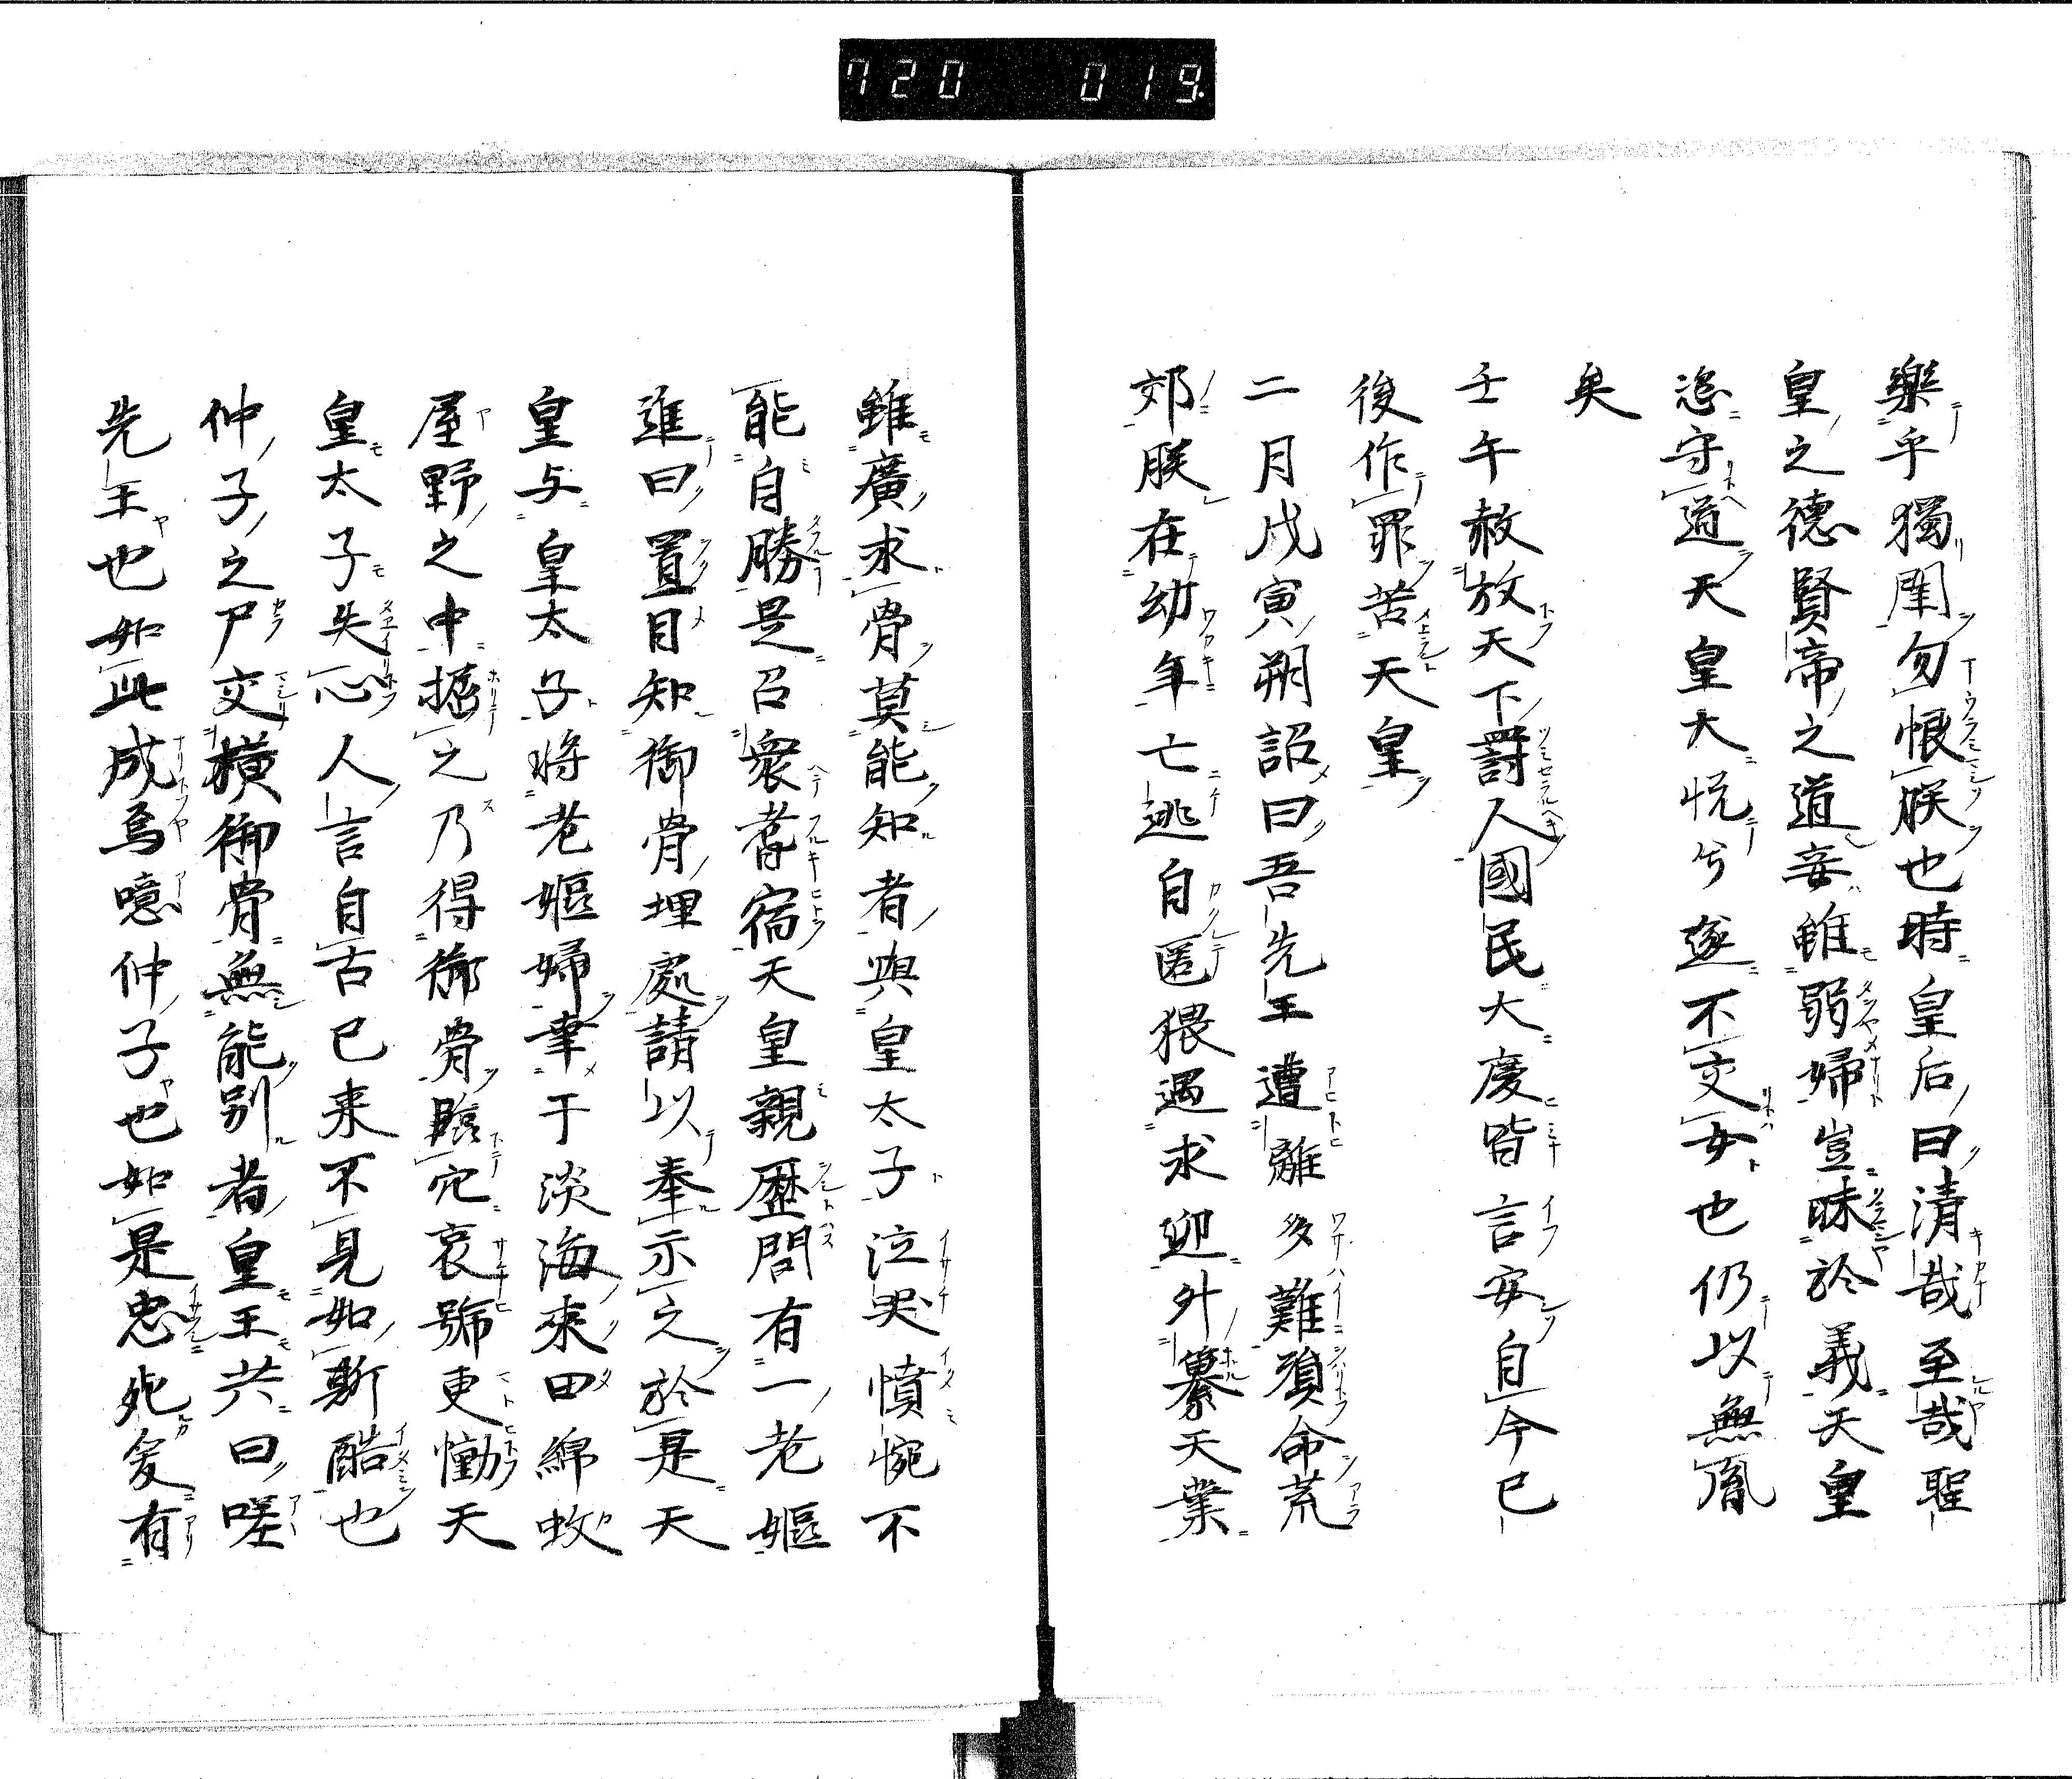 720 019.
樂乎獨閨勿恨朕也時皇后曰清哉至哉聖
皇之德賢帝之道妾雖弱婦豈昧於義天皇
恣守道天皇大悦兮遂不交女也仍以無胤
矣
壬午赦放天下罸人國民大慶皆言安自今已
後作罪苦天皇
二月戊寅朔詔曰吾先王遭離多難殞命荒
郊朕在幼年亡逃自匿猥遇求迎外纂天業
雖廣求骨莫能知者與皇太子泣哭憤惋不
能自勝是召衆耆宿天皇親歷問有一老嫗
進曰置目知御骨埋處請以奉示之於是天
皇与皇太子將老嫗婦幸于淡海來田綿蚊
屋野之中掘之乃得御骨臨穴哀號更慟天
皇太子失心人言自古已来不見如斯酷也
仲子之尸交横御骨無能別者皇王共曰嗟
先王也如此成焉噫仲子也如是忠死爰有